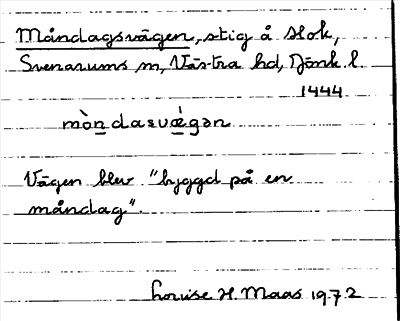 Måndagsvägen, stig å slok,
Svenarums sn, Västra hd, Jönk. l.
1444
mòn̲dasvǽ̲gən
Vägen blev "byggd på en
måndag".
Louise H. Maas 1972